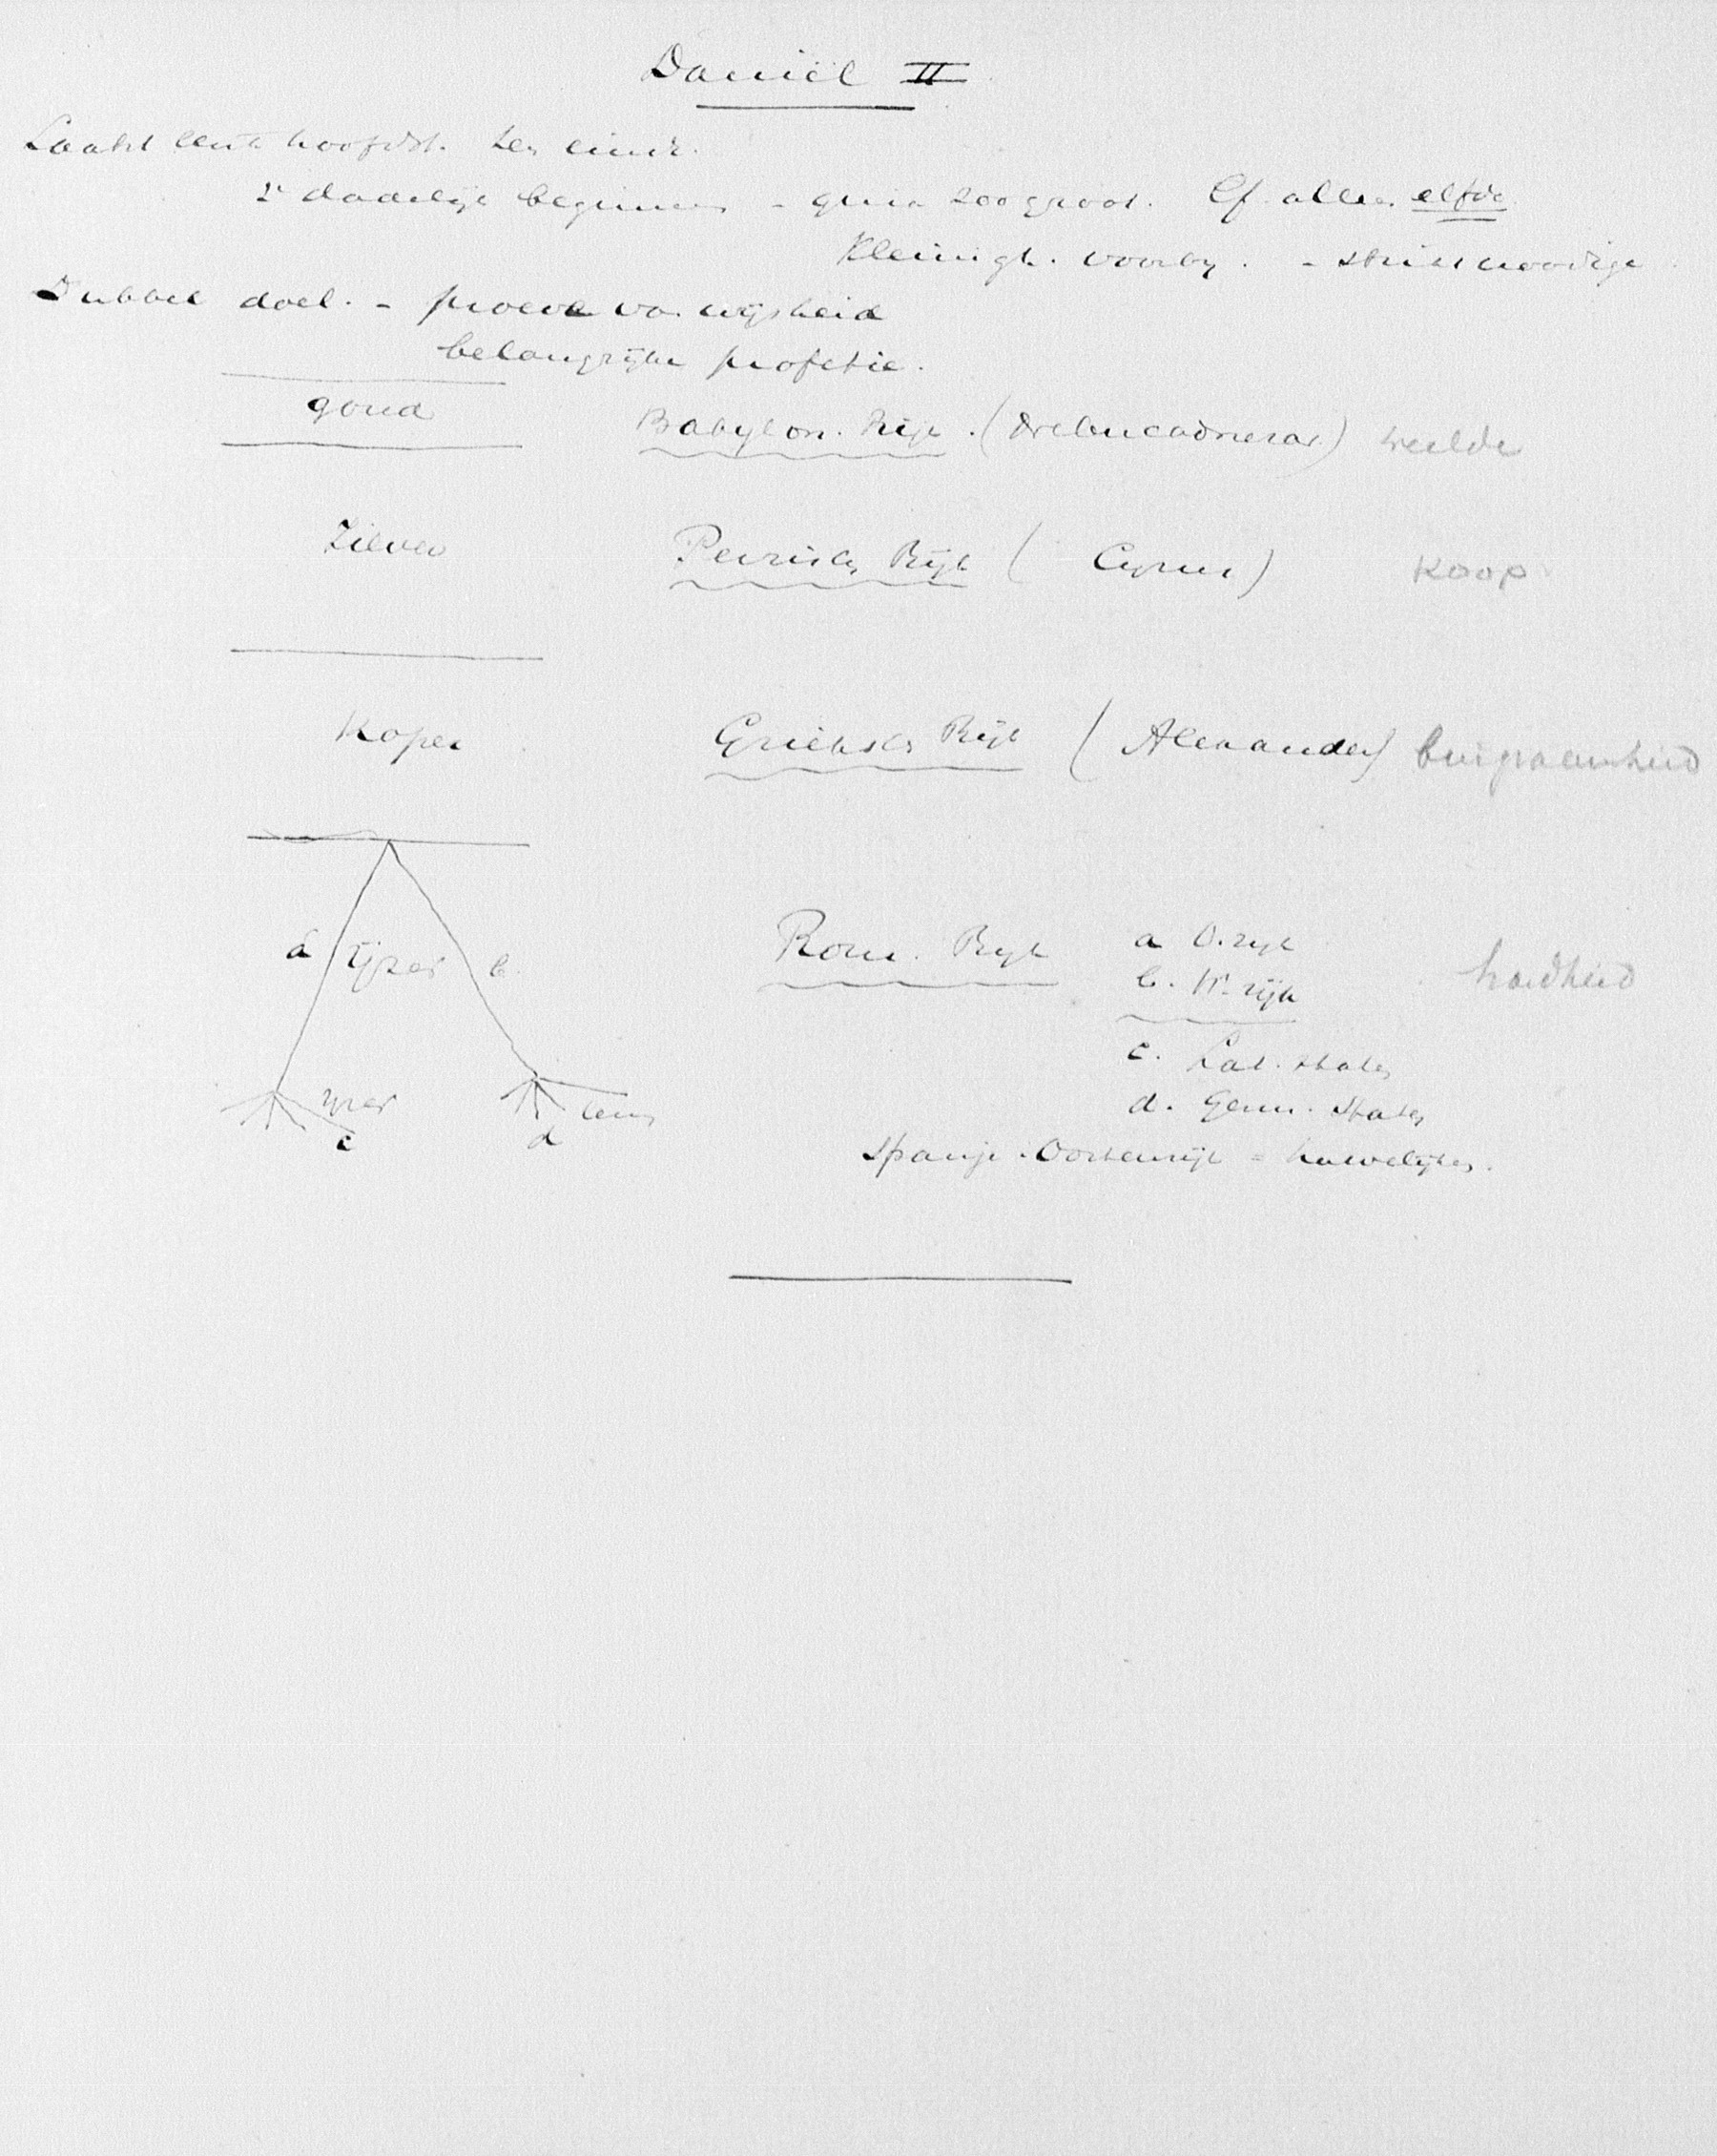 Daniël II
Laatst eerste hoofdst. ten einde.
2e dadelijk beginnen - quia zoo groot. Cf. alleen elfde.
Kleinigh. voorbij. - strikt noodige
Dubbel doel. - proeve van wijsheid
belangrijke profetie.
goud Babylon. Rijk. (Nebucadnezar) weelde
Zilver Perzisch Rijk ( Cyrus) Koop
Koper Grieksch Rijk ( Alexander) buigzaamheid
a ijzer b. Rom. Rijk a O. rijk hardheid
b. W. rijk
c. Lat. staten
ijzer leem d. Germ. staten
c d
Spanje. Oostenrijk = huwelijken.